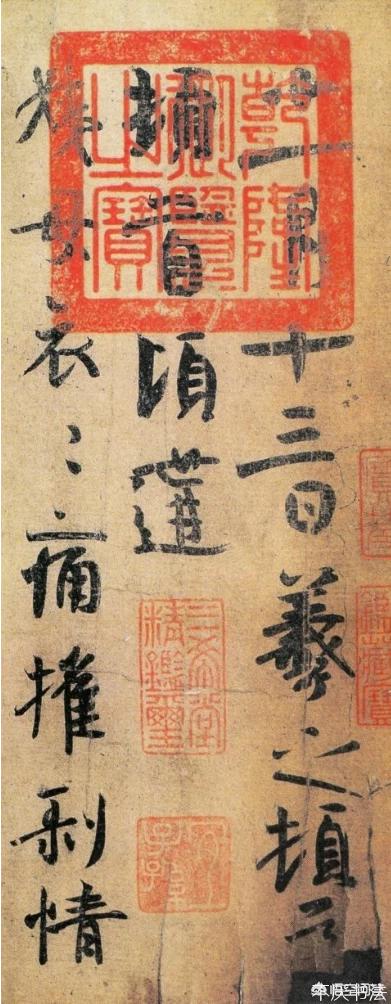 十一月十三日羲之頓首
頓首頃遘
姨母哀〻痛摧剝情
乾隆
御覽
之寶
三希堂
精鑑璽
宜
子孫